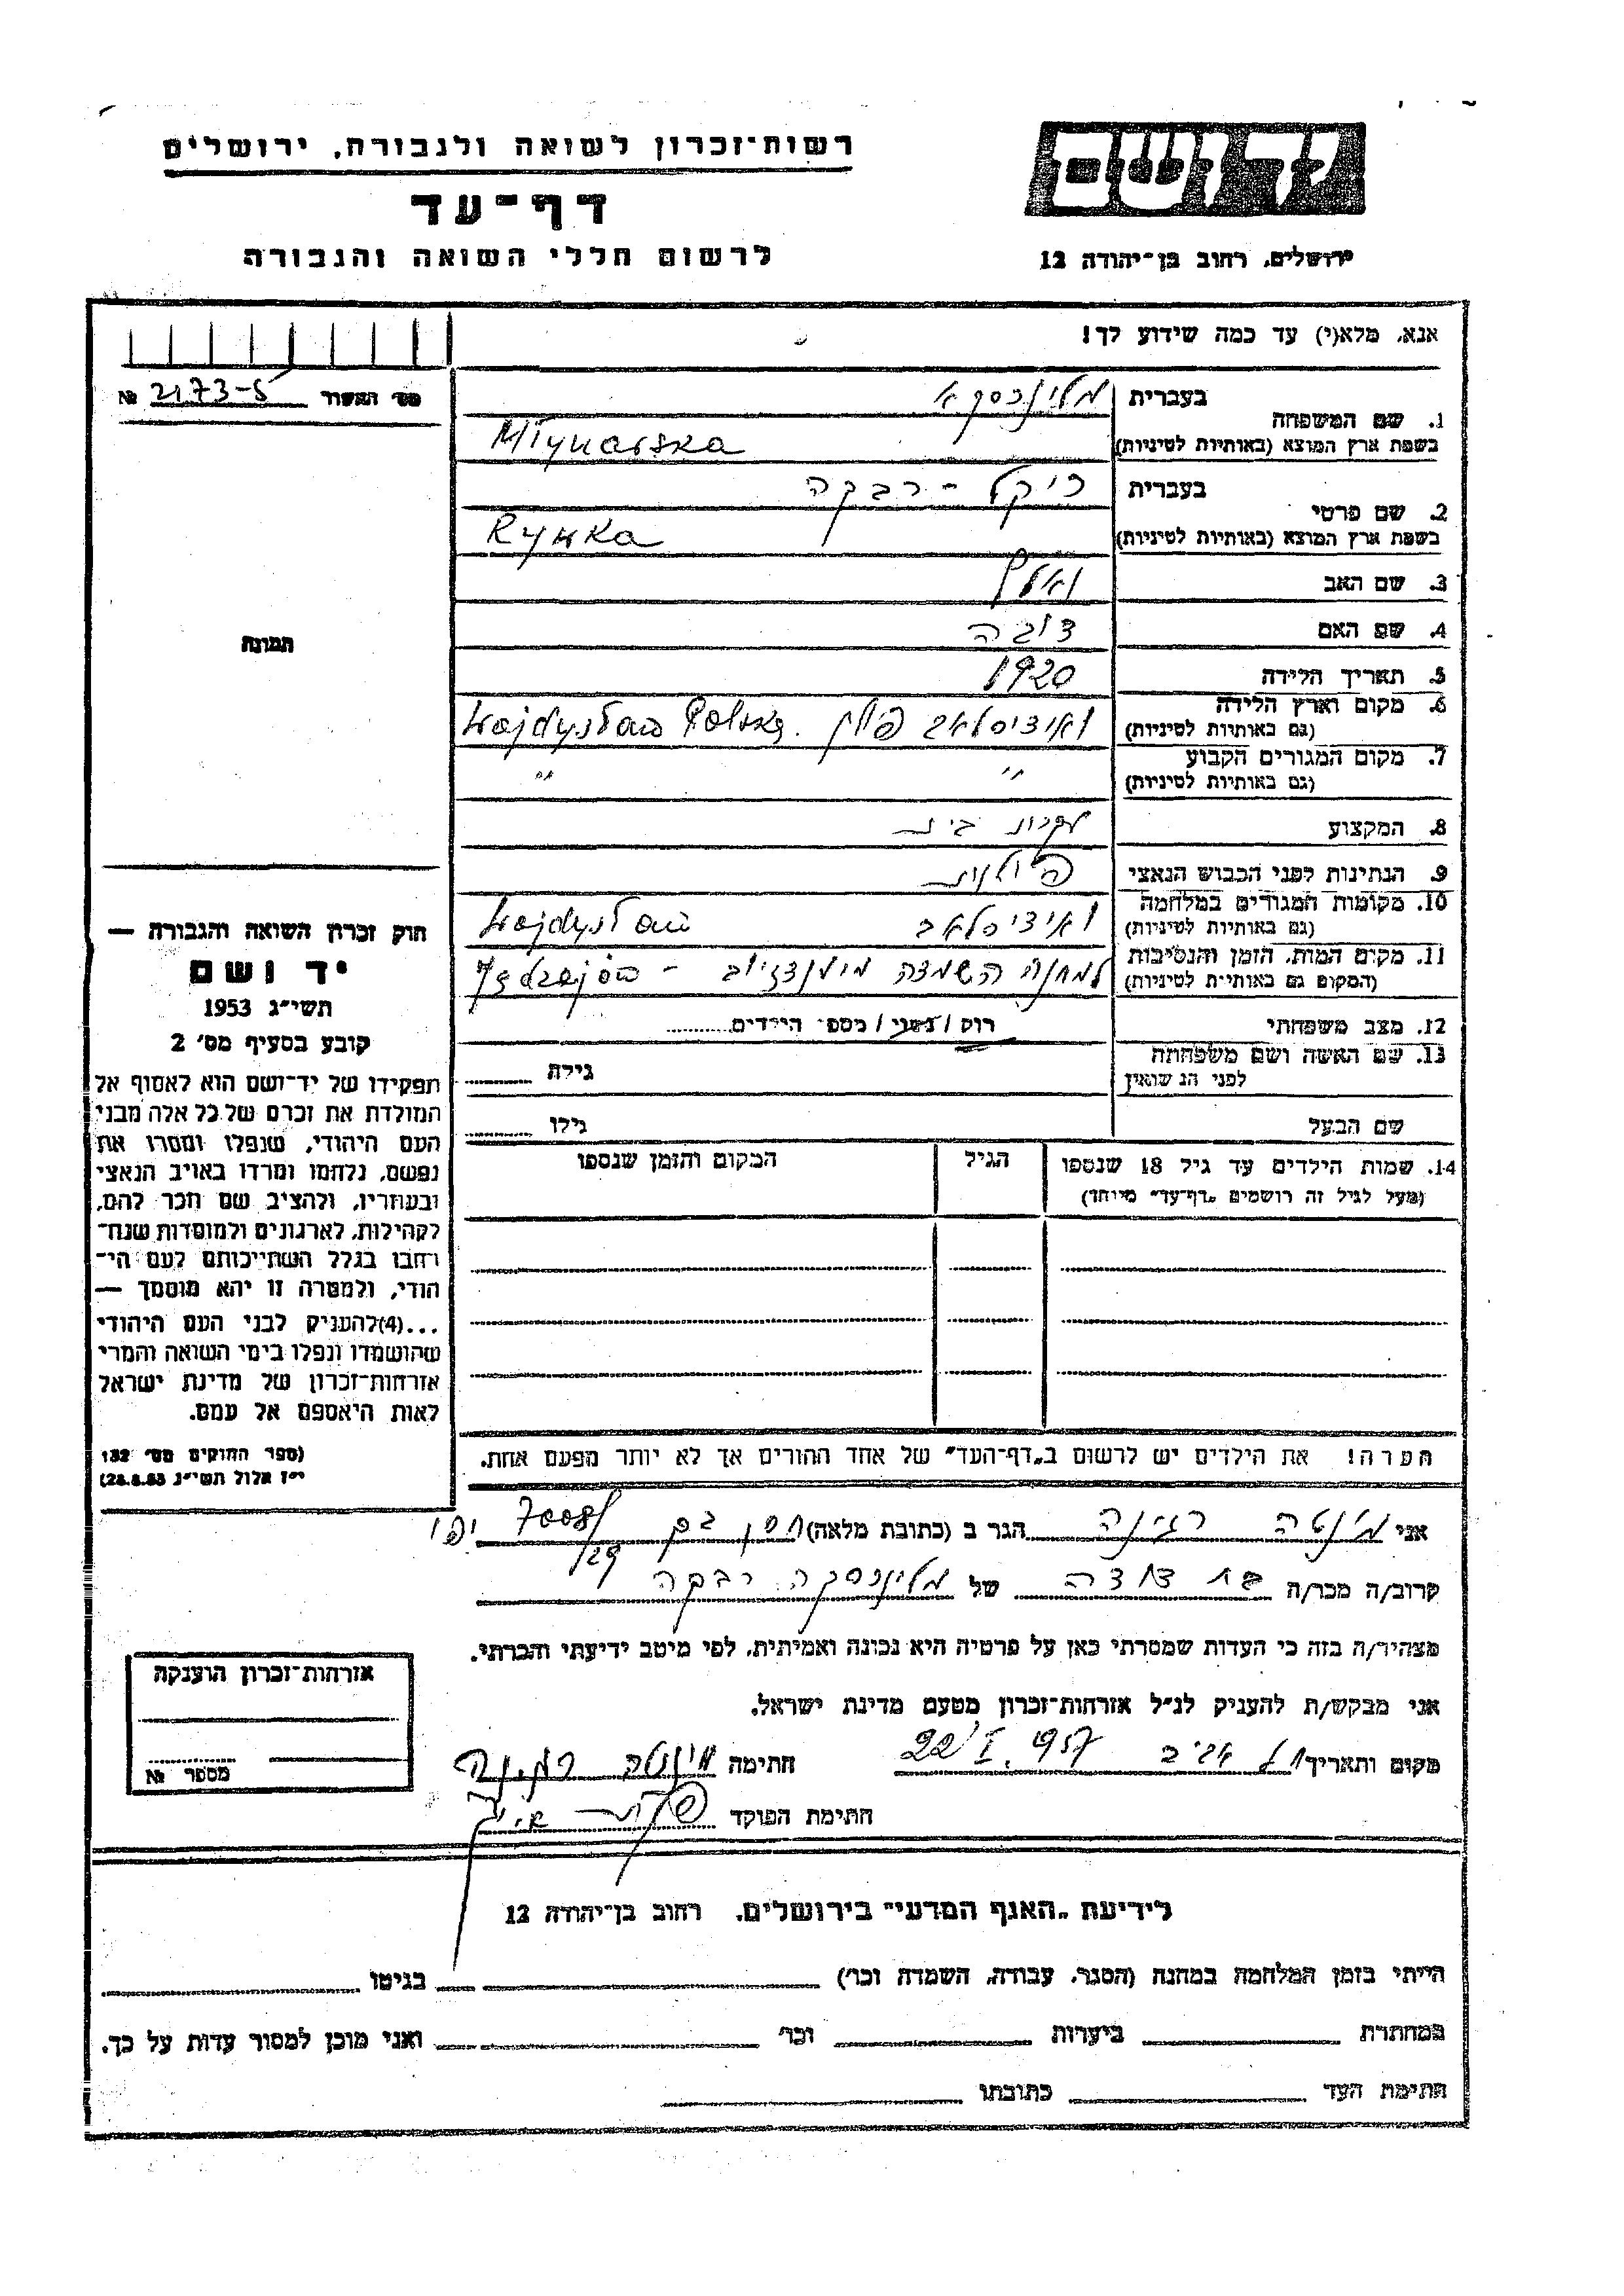 רשות-זכרון לשואה ולגבורה, ירושלים
דף-עד
לרשום חללי השואה והגבורה
יד ושם
ירושלים, רחוב בן-יהודה 12
אנא, מלא(י) עד כמה שידוע לך!
מס' האשור 2173-5 №
1. שם המשפחה
בעברית
בשפת ארץ המוצא (באותיות לטיניות) Młynarska
2. שם פרטי
בעברית רבקה
בשפת ארץ המוצא (באותיות לטיניות) Rywka
3. שם האב
4. שם האם
5. תאריך הלידה 1920
6. מקום וארץ הלידה פולין. Wojdysław Polska
(גם באותיות לטיניות)
7. מקום המגורים הקבוע " "
(גם באותיות לטיניות)
8. המקצוע
9. הנתינות לפני הכבוש הנאצי פולנית
10. מקומות המגורים במלחמה Wojdysław
(גם באותיות לטיניות)
11. מקום המות, הזמן והנסיבות למחנה השמדה
(המקום גם באותיות לטיניות)
12. מצב משפחתי רוק / נשוי / מספר הילדים
13. שם האשה ושם משפחתה גילה
לפני הנשואין
שם הבעל גילו
14. שמות הילדים עד גיל 18 שנספו הגיל המקום והזמן שנספו
(מעל לגיל זה רושמים „דף-עד" מיוחד)
הערה! את הילדים יש לרשום ב„דף-העד" של אחד ההורים אך לא יותר מפעם אחת.
תמונה
חוק זכרון השואה והגבורה —
יד ושם
תשי"ג 1953
קובע בסעיף מס' 2
תפקידו של יד-ושם הוא לאסוף אל
המולדת את זכרם של כל אלה מבני
העם היהודי, שנפלו ומסרו את
נפשם, נלחמו ומרדו באויב הנאצי
ובעוזריו, ולהציב שם וזכר להם,
לקהילות, לארגונים ולמוסדות שנח-
רבו בגלל השתייכותם לעם הי-
הודי, ולמטרה זו יהא מוסמך —
...(4) להעניק לבני העם היהודי
שהושמדו ונפלו בימי השואה והמרי
אזרחות-זכרון של מדינת ישראל
לאות היאספם אל עמם.
(ספר החוקים מס' 132
י"ז אלול תשי"ג 28.8.53)
אני רגינה הגר ב (כתובת מלאה) 7008/29 יפו
קרוב/ה מכר/ה בת דודה של רבקה
מצהיר/ה בזה כי העדות שמסרתי כאן על פרטיה היא נכונה ואמיתית, לפי מיטב ידיעתי והכרתי.
אני מבקש/ת להעניק לנ"ל אזרחות-זכרון מטעם מדינת ישראל.
מקום ותאריך תל אביב 22 I. 957 חתימה
חתימת הפוקד
אזרחות-זכרון הוענקה
מספר №
לידיעת „האגף המדעי" בירושלים, רחוב בן-יהודה 12
הייתי בזמן המלחמה במחנה (הסגר, עבודה, השמדה וכו') בגיטו
במחתרת ביערות וכו' ואני מוכן למסור עדות על כך.
חתימת העד כתובתו